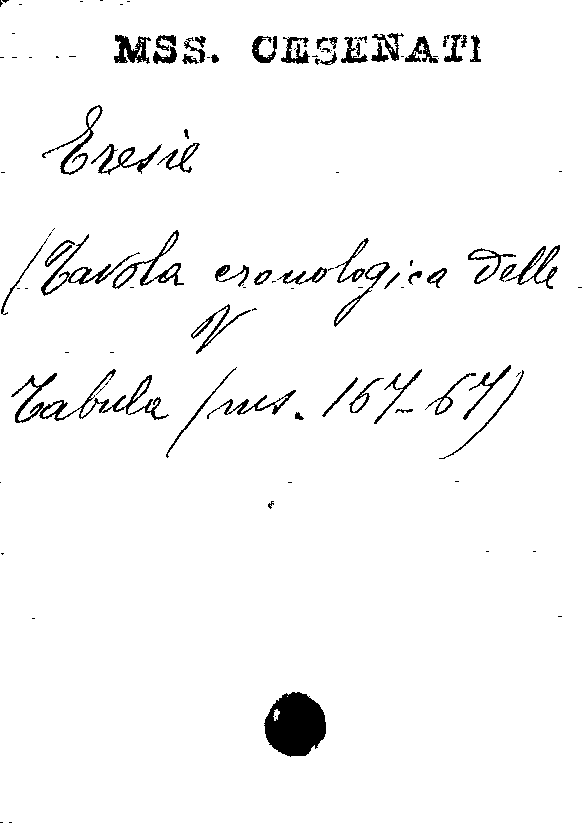 MSS. CESENATI
Eresie
(Tavola cronologica delle
V
Tabula (ms. 167-67)